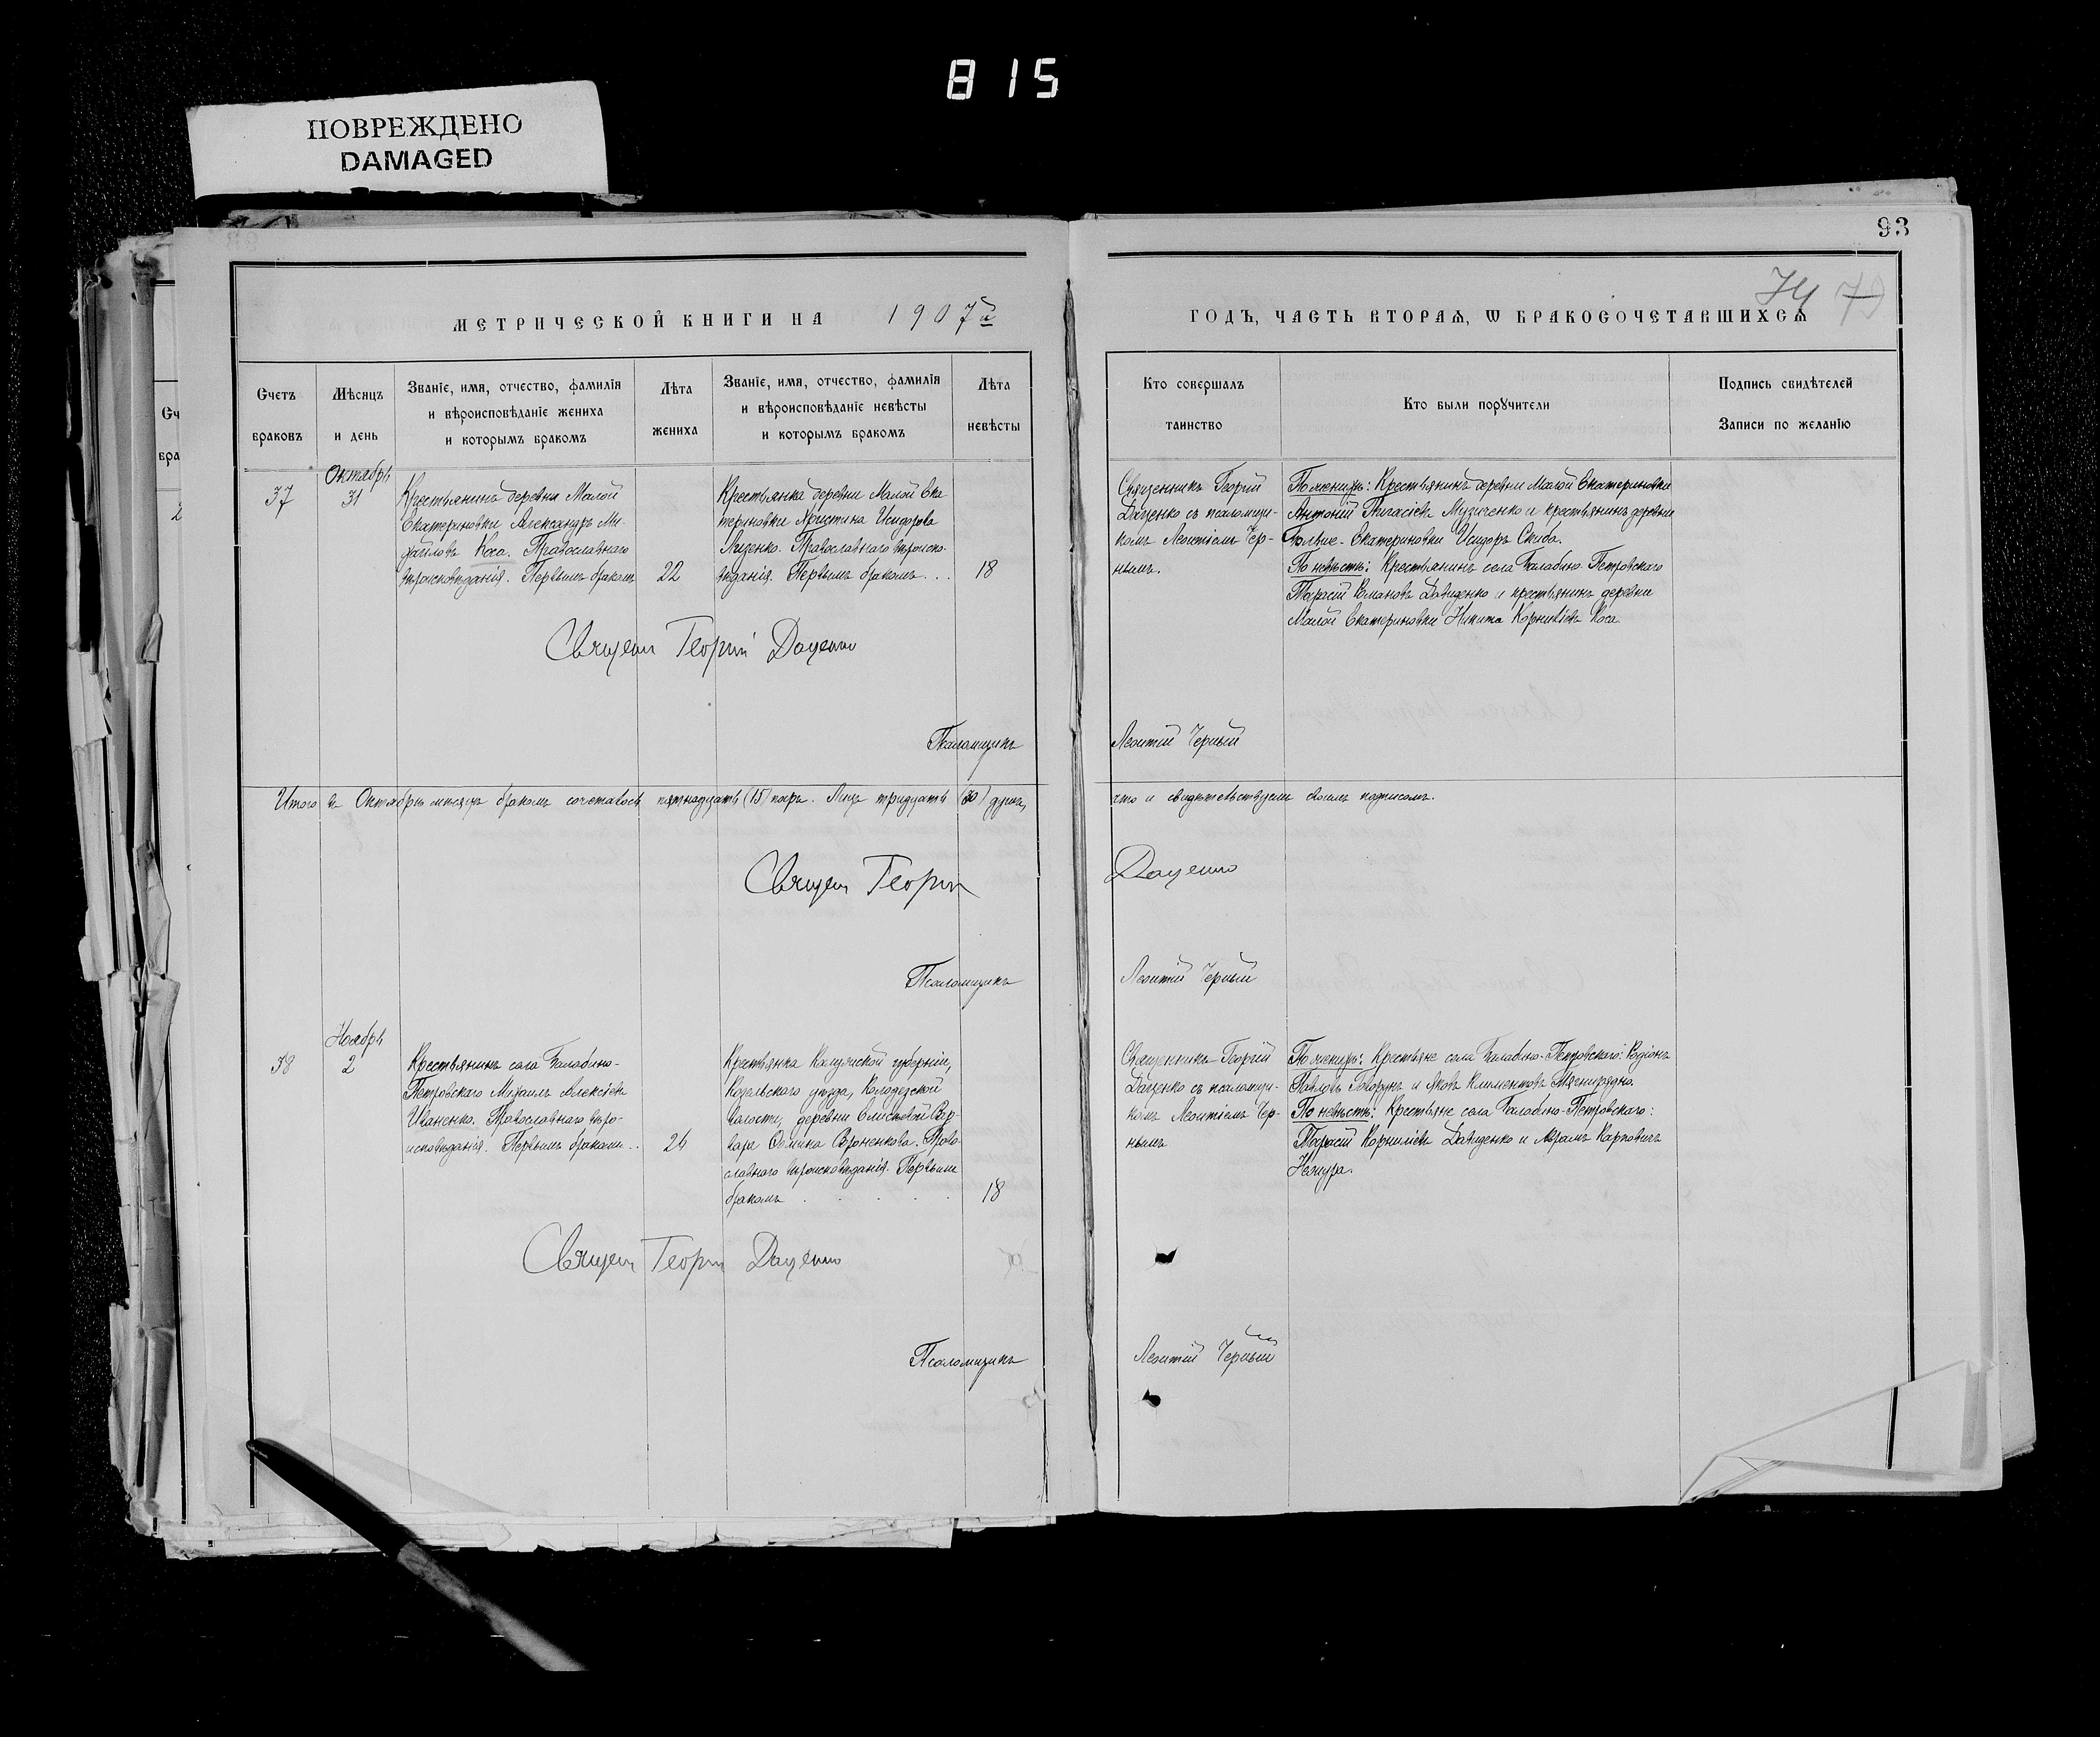 815
ПОВРЕЖДЕНО
DAMAGED
93
74 79
МЕТРИЧЕСКОЙ КНИГИ НА 1907й
ГОДЪ, ЧАСТЬ ВТОРАЯ, Ѡ БРАКОСОЧЕТАВШИХСЯ
Счетъ
браковъ
Мѣсяцъ
и день
Званіе, имя, отчество, фамилія
и вѣроисповѣданіе жениха
и которымъ бракомъ
Лѣта
жениха
Званіе, имя, отчество, фамилія
и вѣроисповѣданіе невѣсты
и которымъ бракомъ
Лѣта
невѣсты
Кто совершалъ
таинство
Кто были поручители
Подпись свидѣтелей
Записи по желанію
37
Октябрь
31
Крестьянинъ деревни Малой
Екатериновки Александръ Ми-
хайловъ Коса. Православнаго
вѣроисповѣданія. Первымъ бракомъ
22
Крестьянка деревни Малой Ека
териновки Христина Исидорова
Лизенко. Православнаго вѣроиспо-
вѣданія. Первымъ бракомъ...
18
Священникъ Георгій
Даценко съ псаломщи-
комъ Леонтіемъ Чер-
нымъ.
По женихѣ: Крестьянинъ деревни Малой Екатериновки
Антоній Музиченко и крестьянинъ деревни
Больше-Екатериновки Исидоръ Скиба.
По невѣстѣ: Крестьянинъ села Балабино-Петровскаго
Тарасій Романовъ Давиденко и крестьянинъ деревни
Малой Екатериновки Никита Корниліевъ Коса
Священ Георгій Даценко
Псаломщикъ Леонтій Черный
Итого въ Октябрѣ мѣсяцѣ бракомъ сочетались пятнадцать (15) паръ. Лицъ тридцать (30) душъ, что и свидѣтельствуемъ своимъ подписомъ.
Священ Георгій Даценко
Псаломщикъ Леонтій Черный
38
Ноябрь
2
Крестьянинъ села Балабино-
Петровскаго Михаилъ Алексіевъ
Иваненко. Православнаго вѣро-
исповѣданія. Первымъ бракомъ..
26
Крестьянка Калужской губерніи,
Козельскаго уѣзда, Колодезской
волости, деревни Вар-
вара Вороненкова. Право-
славнаго вѣроисповѣданія. Первымъ
бракомъ . . . . .
18
Священникъ Георгій
Даценко съ псаломщи-
комъ Леонтіемъ Чер-
нымъ
По женихѣ: Крестьяне села Балабино-Петровскаго: Родіонъ
Павловъ и Яковъ Климентовъ
По невѣстѣ: Крестьяне села Балабино-Петровскаго:
Тарасій Корниліевъ Давиденко и Абрамъ Карповичъ
Священ Георгій Даценко
Псаломщикъ Леонтій Черный